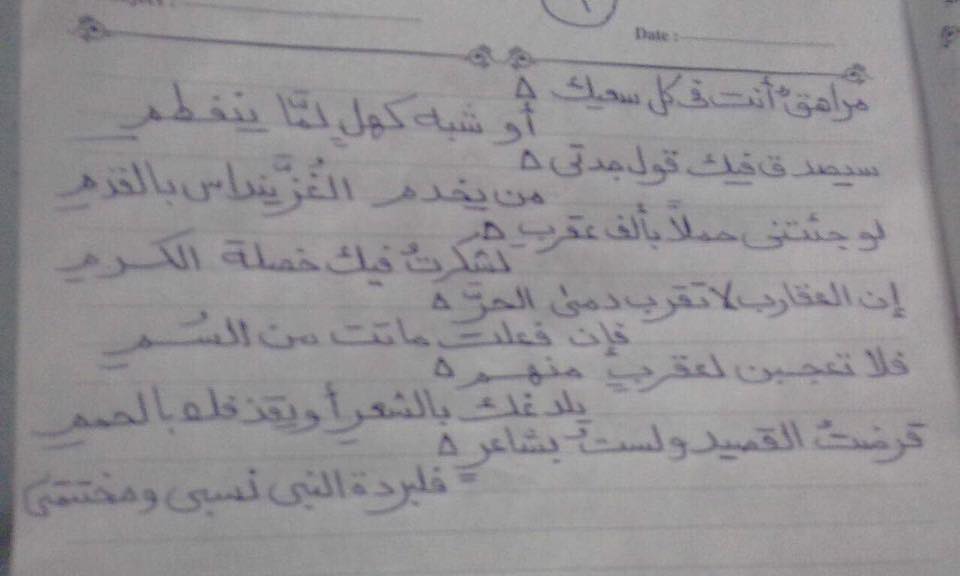 ١
Date :
مراهقٌ أنت فى كل سعيك ۵
أو شبه كهلٍ لمَّا ينفطمِ
سيصدق فيك قول جدتى ۵
من يخدم الغُزِّ ينداس بالقدمِ
لو جئتنى حملاً بألف عقربٍ ۵
لشكرتُ فيك خصلة الكرمِ
إن العقارب لا تقرب دمىَ الحرَّ ۵
فإن فعلت ماتت من السُمِ
فلا تعجبن لعقربٍ منهم ۵
يلدغك بالشعرِ أو يقذفك بالحممِ
قرضتُ القصيد ولستُ بشاعرٍ ۵
فلبردة النبى نسبى ومختتمى